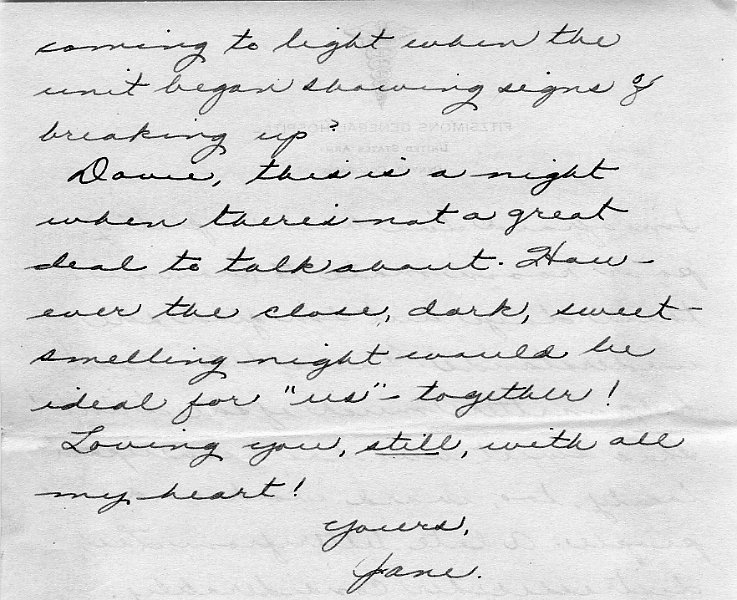 coming to light when the
unit began showing signs of
breaking up?
Davie, this is a night
when there's not a great
deal to talk about. How-
ever the close, dark, sweet-
smelling night would be
ideal for "us" - together!
Loving you, still, with all
my heart!
Yours,
Jane.